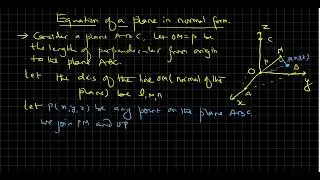 Equation of a plane in normal form.
→ Consider a plane ABC, let OM=p be
the length of perpendicular from origin
to the plane ABC.
Let the dcs of the line OM (normal of the
plane) be l, m, n
Let P(x, y, z) be any point on the plane ABC
We join PM and OP
z
C
M
P(x,y,z)
P
O
B
y
A
x